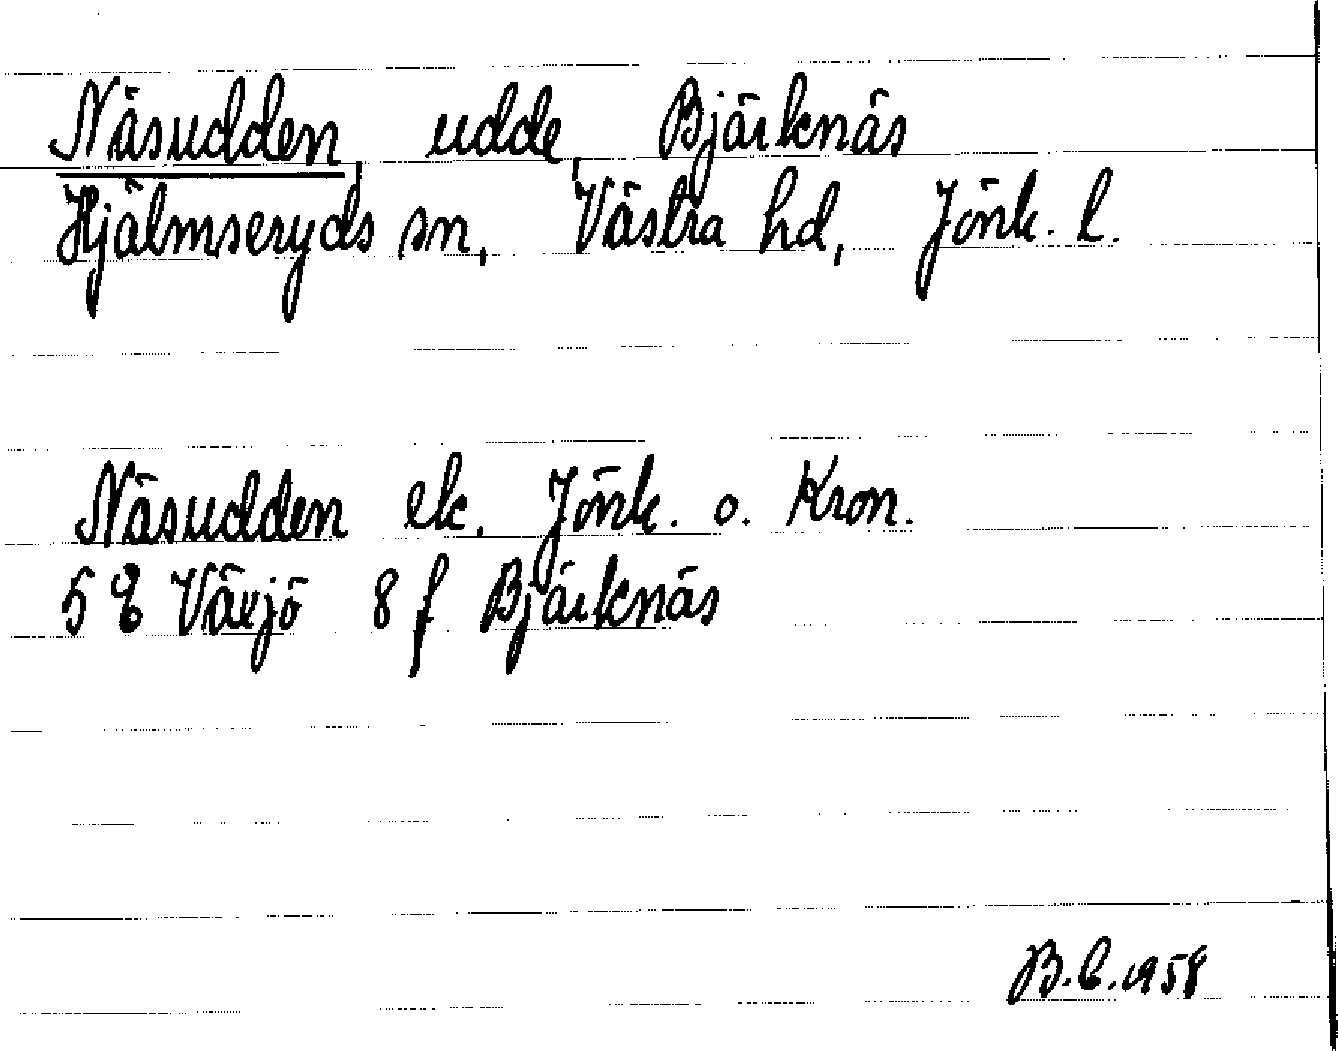 Näsudden, udde, Bjärknäs
Hjälmseryds sn, Västra hd, Jönk. l.
Näsudden ek. Jönk. o. Kron.
5 E Växjö 8 f Bjärknäs
B.C.1958